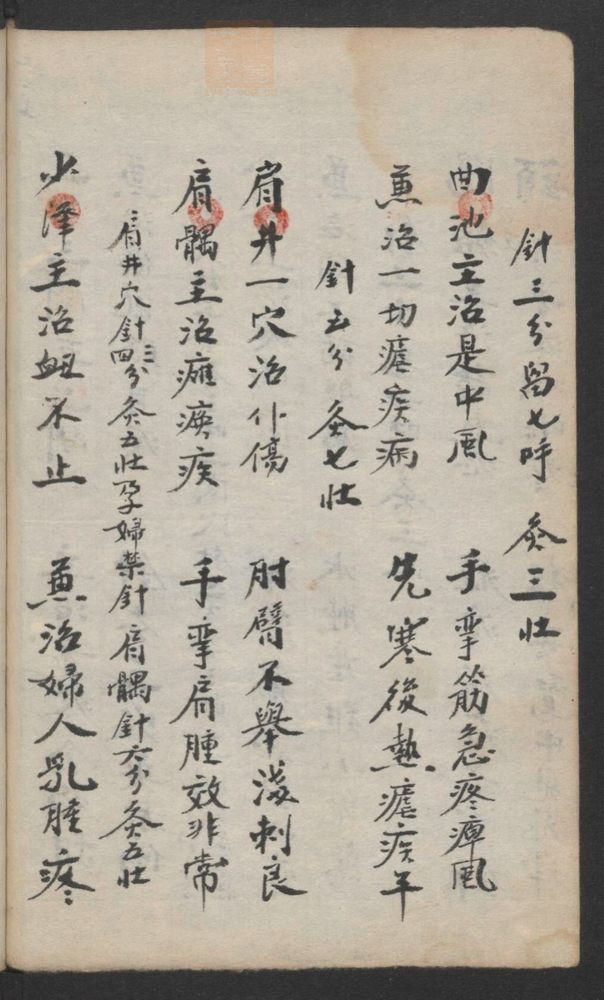 針三分留七呼 灸三壯
曲池主治是中風 手攣筋急疼痺風
兼治一切瘧疾病 先寒後熱瘧疾平
針五分 灸七壯
肩井一穴治仆傷 肘臂不舉淺刺良
肩髃主治癱瘓疾 手攣肩腫效非常
肩井穴針三四分灸五壯孕婦禁針 肩髃針六分灸五壯
少澤主治衄不止 兼治婦人乳腫疼